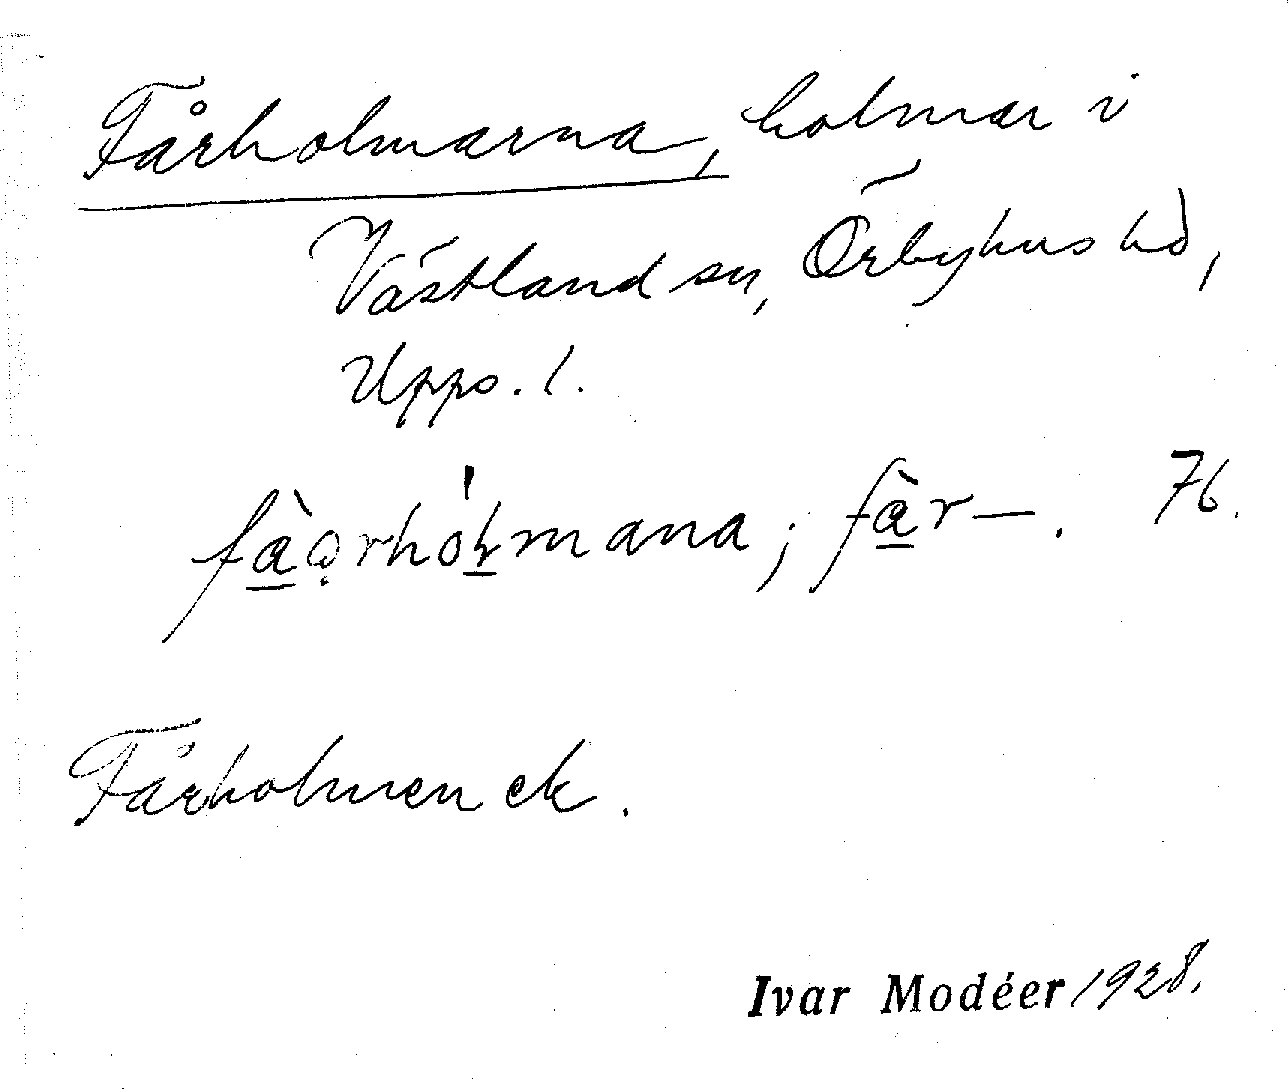 Fårholmarna, holmar i
Västland sn, Örbyhus hd,
Upps. l.
fàǫrhólmana; fàr—. 76.
Fårholmen ek.
Ivar Modéer 1928.